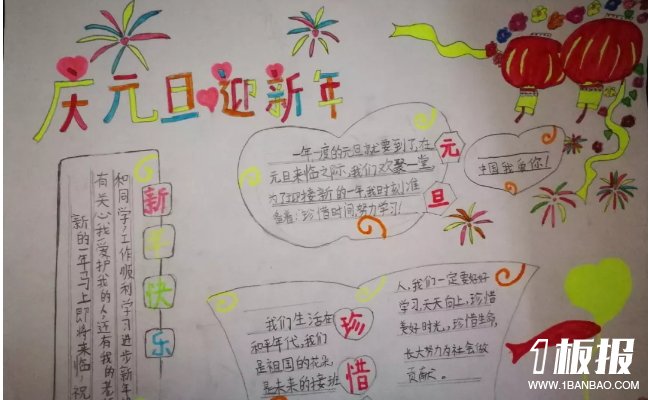 庆元旦迎新年
一年一度的元旦就要到了,在
元旦来临之际,我们欢聚一堂
为了迎接新的一年我时刻准
备着:珍惜时间,努力学习!
元
旦
中国我爱你!
新的一年马上即将来临,祝
有关心我爱护我的人,还有我的老
和同学:工作顺利学习进步新年
新
年
快
乐
我们生活在
和平年代,我们
是祖国的花朵,
是未来的接班
珍
惜
人,我们一定要好好
学习,天天向上,珍惜
美好时光,,珍惜生命,
长大努力为社会做
贡献.
1板报
WWW.1BANBAO.COM